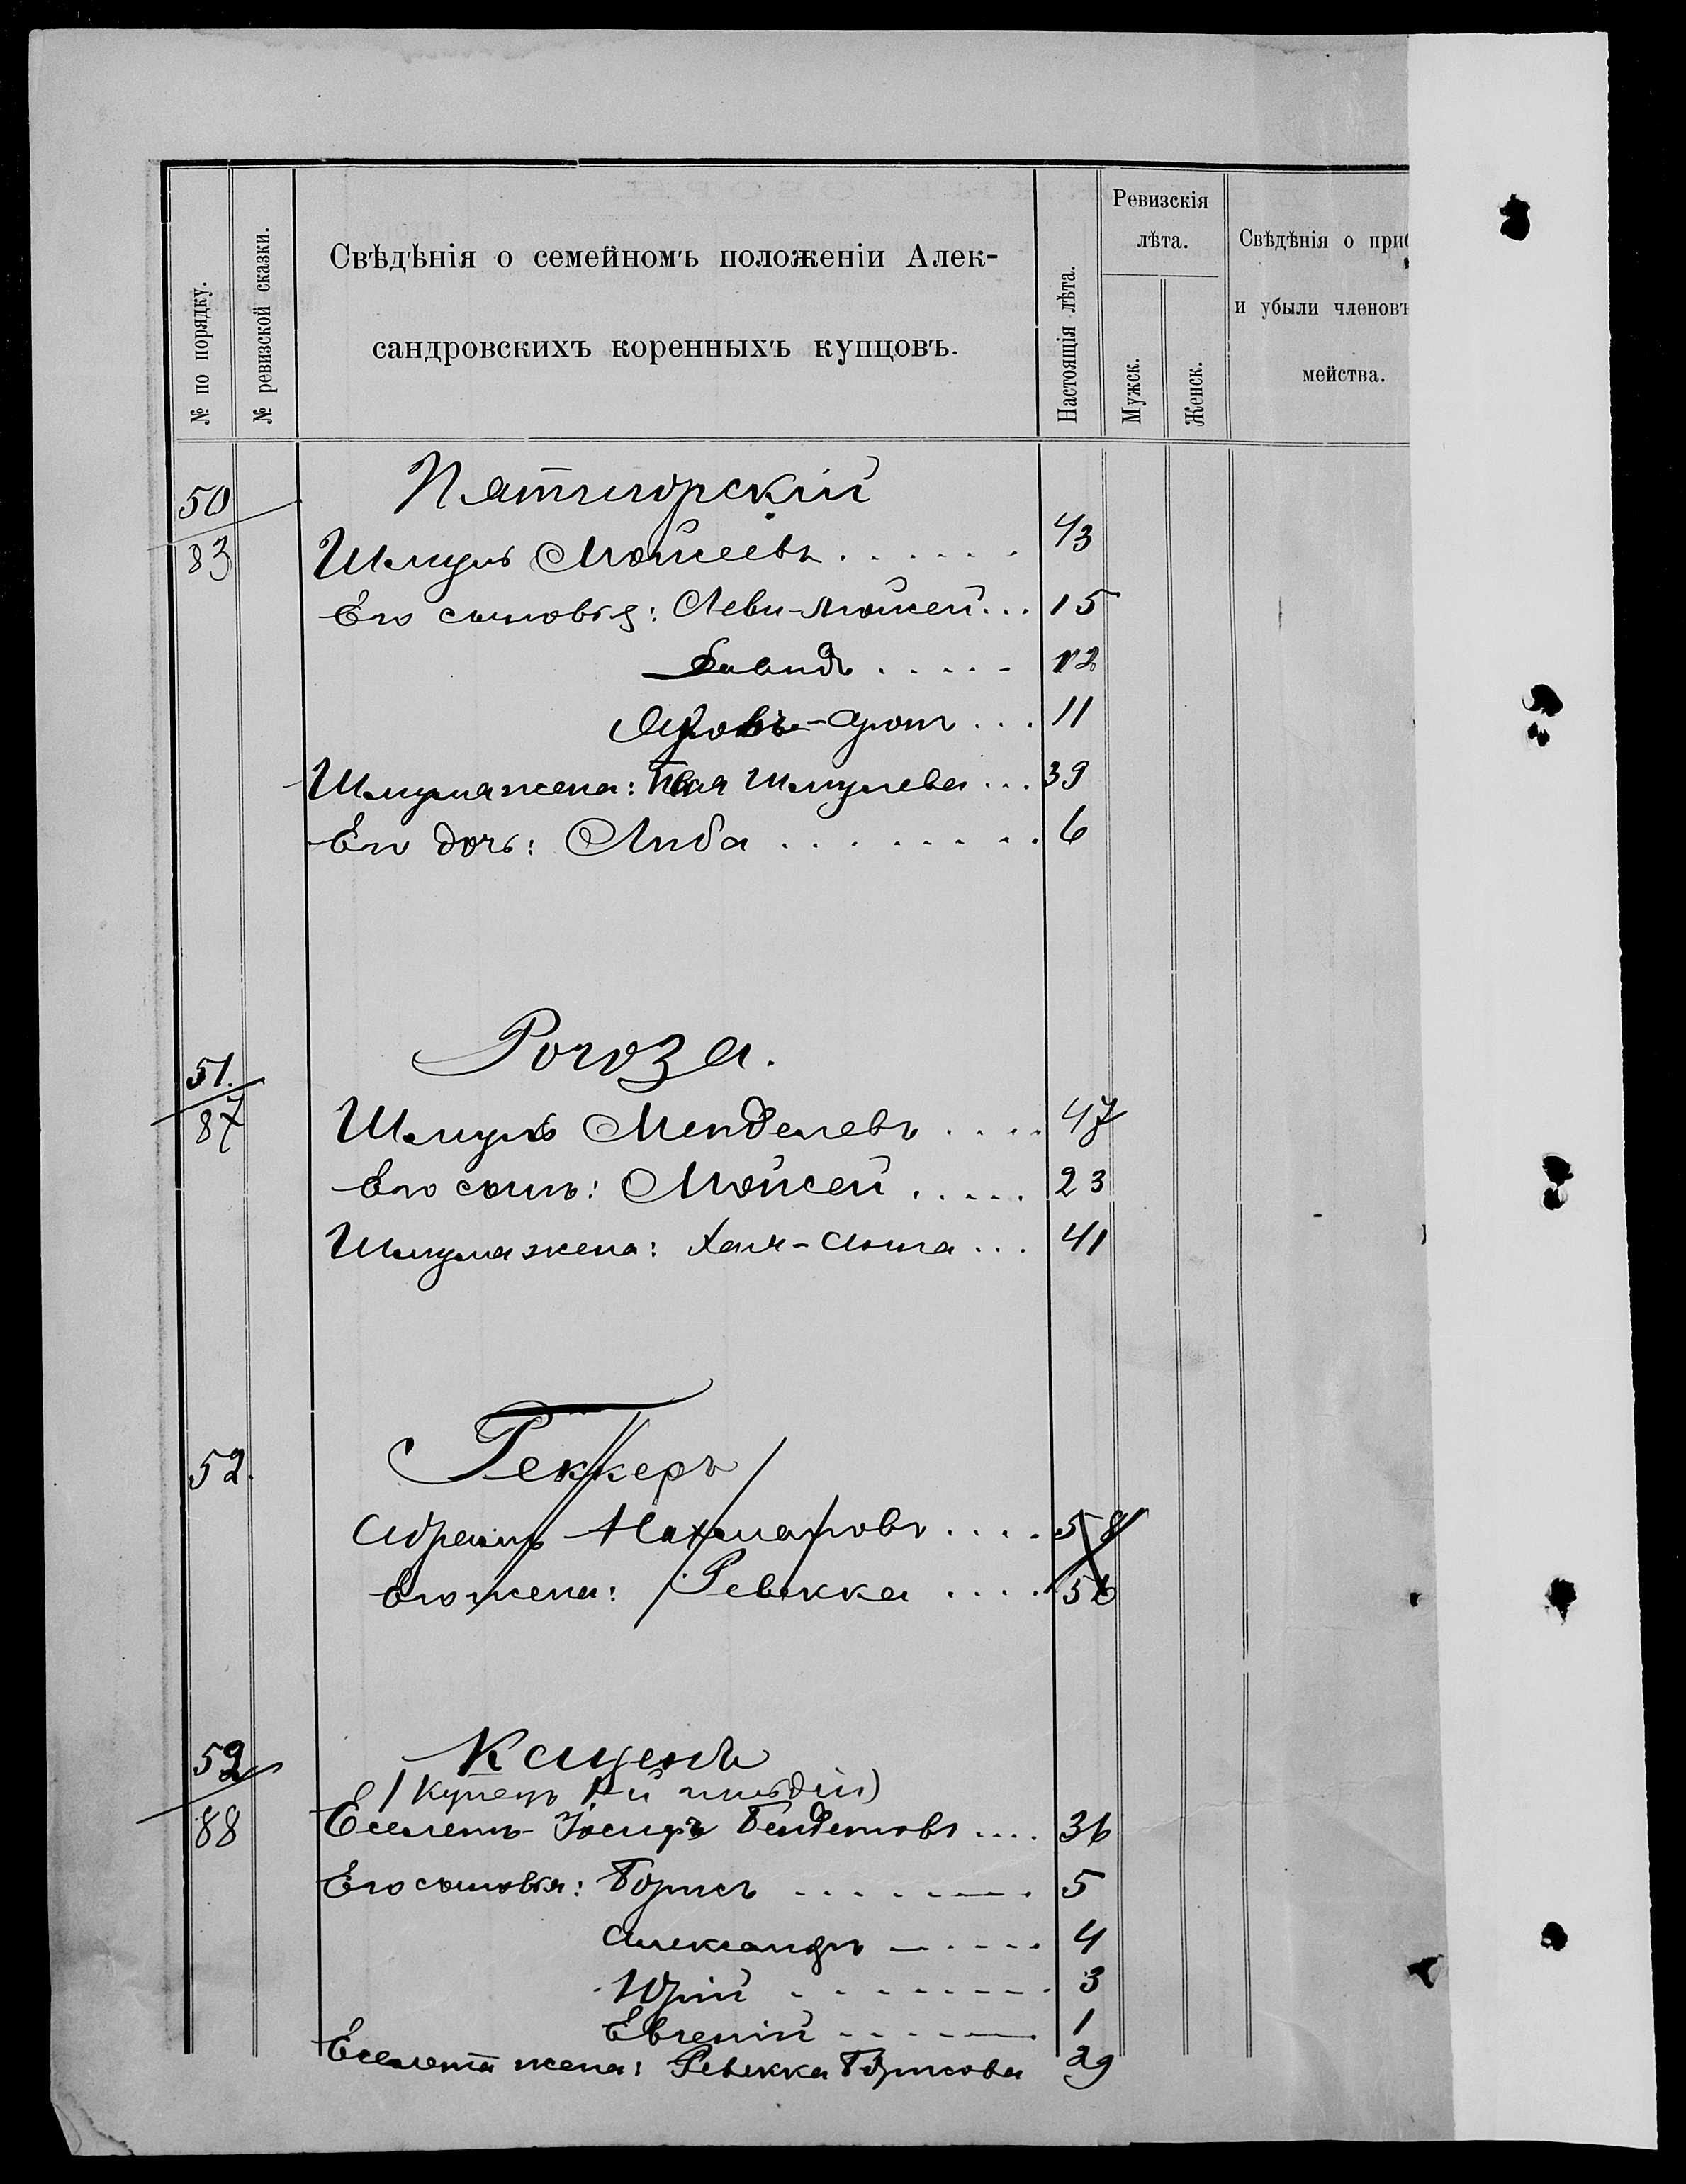 № по порядку.
№ ревизской сказки.
Свѣдѣнія о семейномъ положеніи Алек-
сандровскихъ коренныхъ купцовъ.
Настоящія лѣта.
Ревизскія
лѣта.
Мужск.
Женск.
Свѣдѣнія о при
и убыли членовъ
мейства.
50 Пятигорскій
83 Шмуль Мойсеевъ . . . . . . 43
Его сыновья: Леви-Мойсей . . . 15
Давидъ . . . . . 12
Аронъ . . . 11
Шмуля жена: Шмулева . . . 39
Его дочь: Либа . . . . . . . . 6
51. Рогоза.
87 Шмуль Менделевъ . . . . 47
Его сынъ: Мойсей . . . . . 23
Шмуля жена: Хая- . . . 41
52. Геккеръ
Абрамъ . . . . 58
Его жена: Ревекка . . . . 56
52 Каценъ
(Купецъ 1й гильдіи)
88 Іосифъ . . . . 36
Его сыновья: Борисъ . . . . . . . 5
Александръ . . . . . 4
Юрій . . . . . . . . 3
Евгеній . . . . . . 1
жена: Ревекка Борисова 29